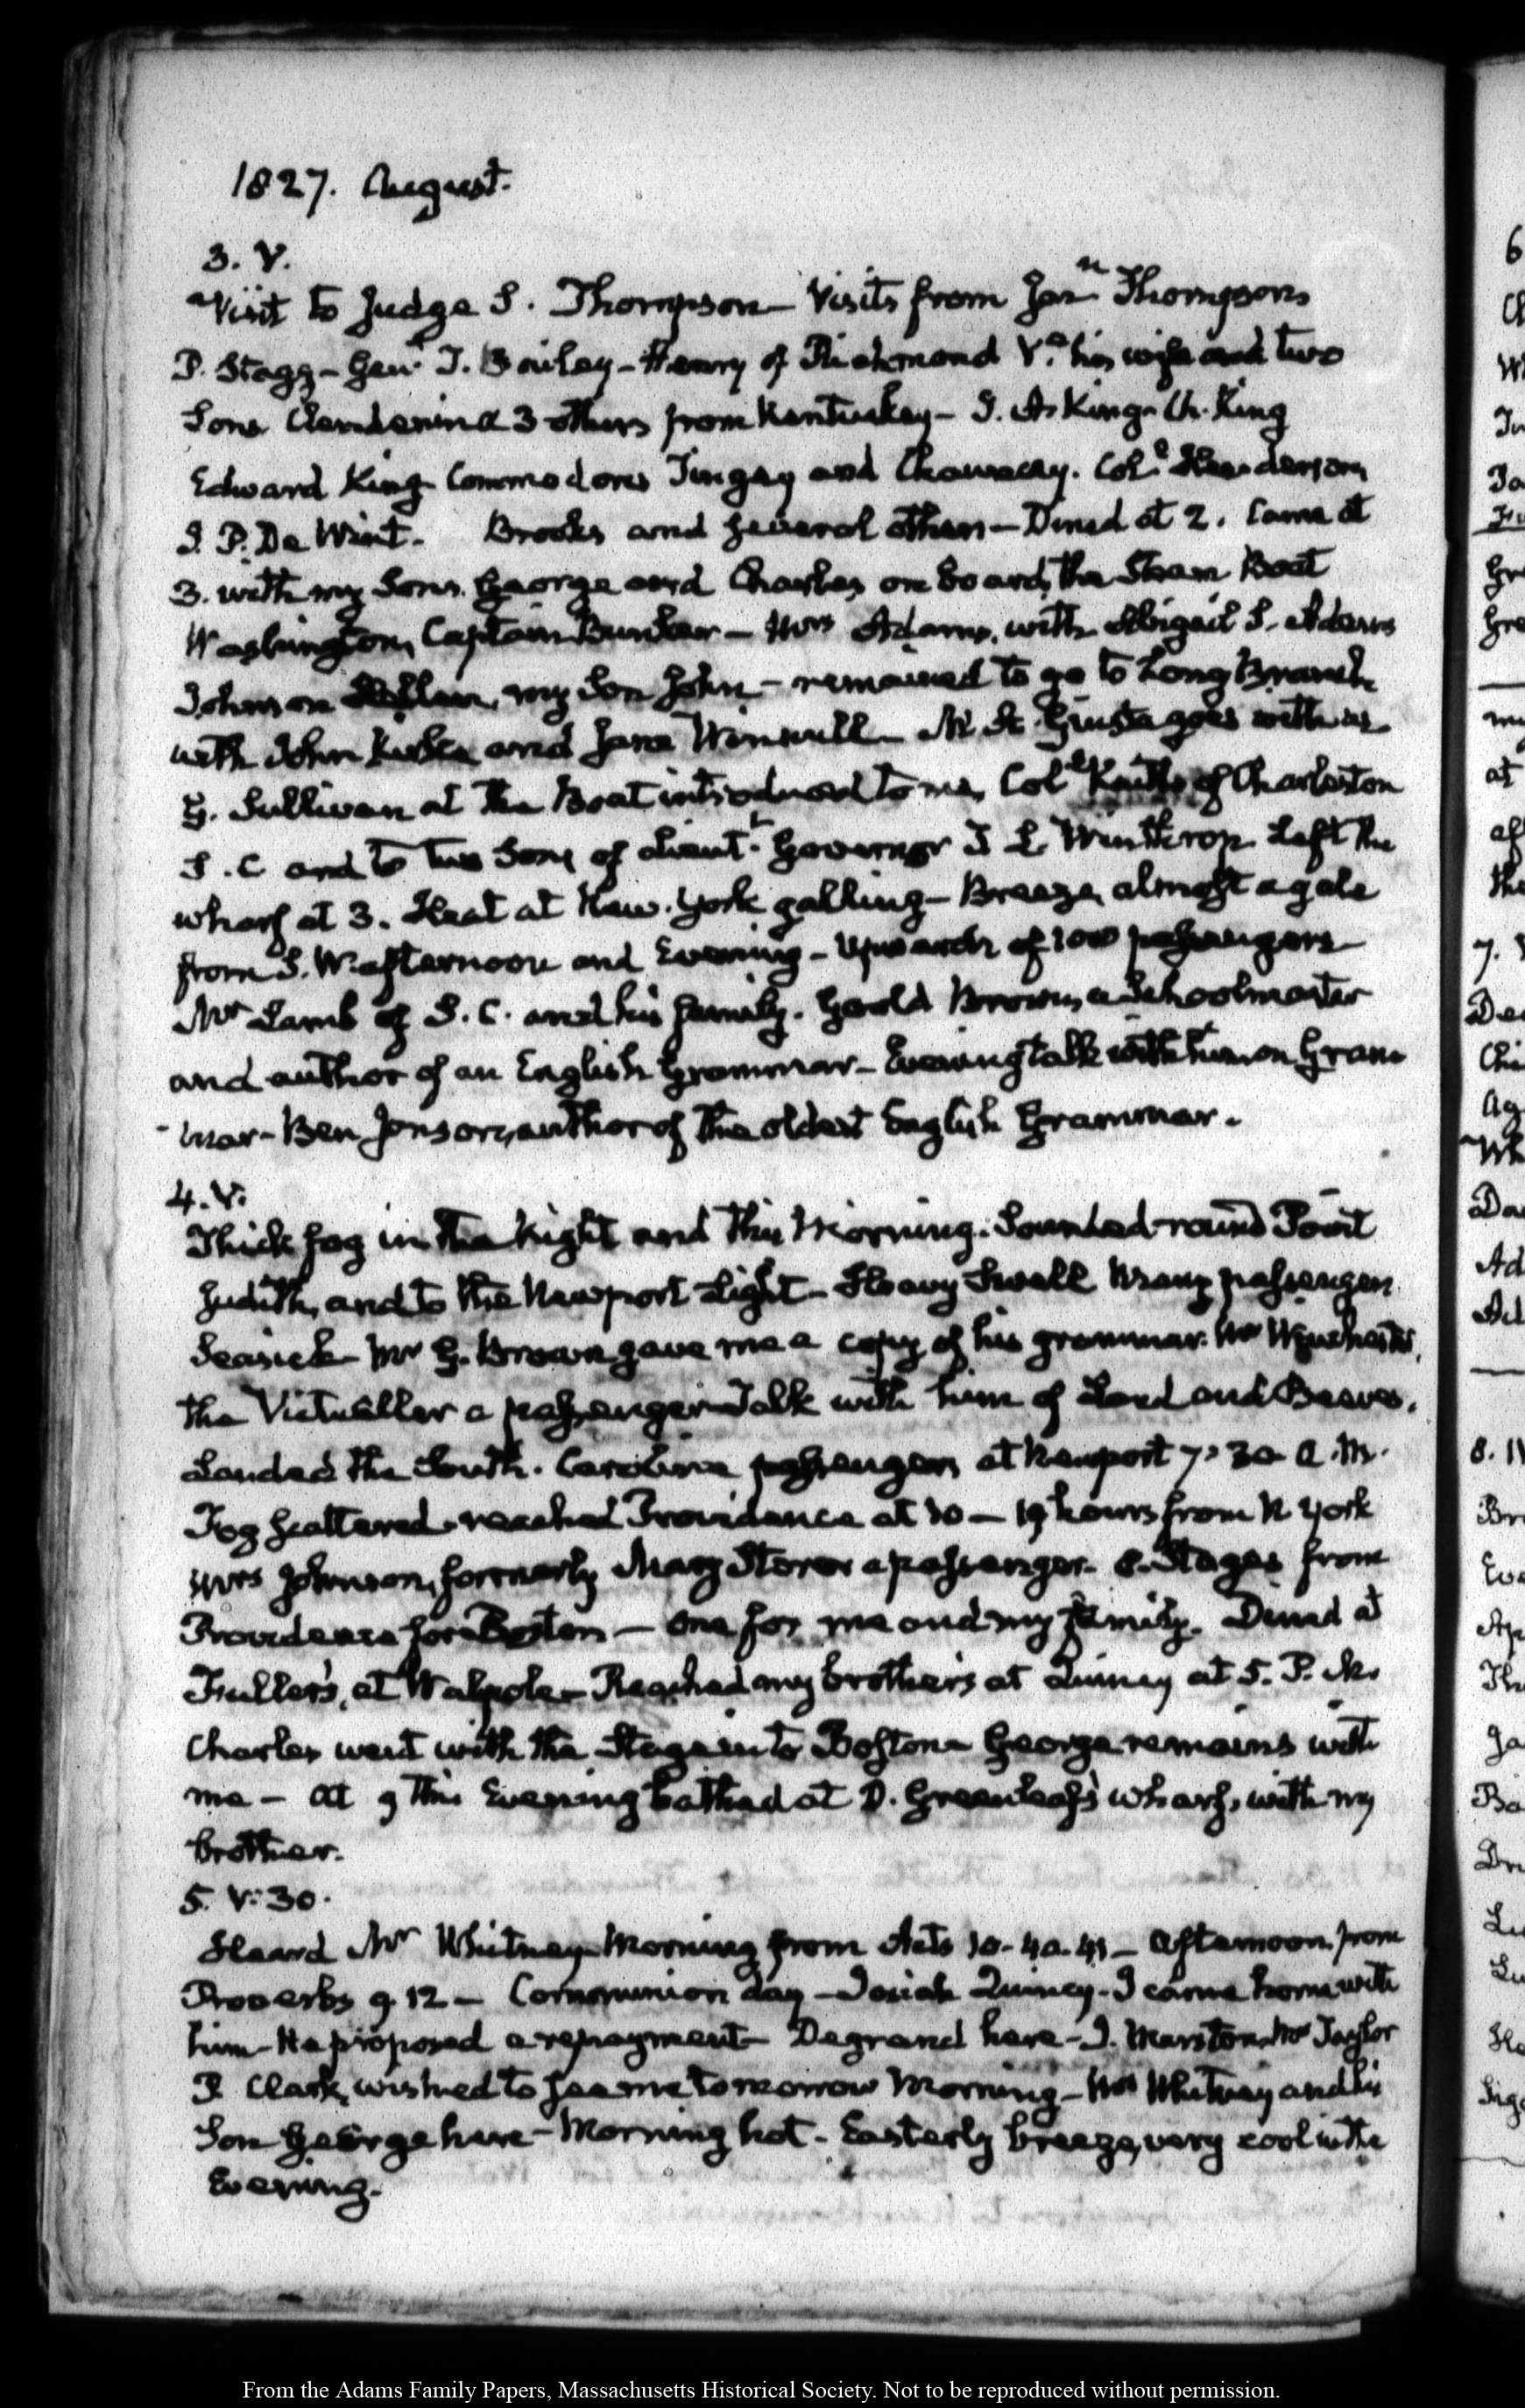 1827. August.
3. V.
Visit to Judge S. Thompson – Visits from Jas.n Thompson
P. Stagg – Genl. T. Bailey – Henry of Richmond Va. his wife and two
Sons Clendenin & 3 others from Kentuckey – J. A. King – Ch. King
Edward King Commodores Tingey and Chauncey. Coll. Henderson
J. P. De Wint. Brooks and several others – Dined at 2. Came at
3. with my Sons George and Charles on board the Steam Boat
Washington, Captain Bunker – Mrs Adams, with Abigail S. Adams
Johnson Hellen, my Son John – remained to go to Long Branch
with John Kirke and Jane Winnull – M. A. Giusta goes with us
G. Sullivan at the Boat introduced to me, Coll. of Charleston
S. C and to two Sons of Lieut.t Governor T L Winthrop. Left the
wharf at 3. Heat at New-York galling – Breeze, almost a gale
from S. W. afternoon and Evening – Upwards of 100 passengers
Mr Lamb of S. C. and his family. Goold Brown, a Schoolmaster
and author of an English Grammar – Evening talk with him on Gram
-mar – Ben Jonson, author of the oldest English Grammar.
4. V.
Thick fog in the Night and this Morning. Sounded round Point
Judith, and to the Newport Light – Heavy Swell Many passengers
Seasick – Mr G. Brown gave me a copy of his grammar. Mr Winchester,
the Victualler a passenger Talk with him of Lard and Beeves.
Landed the South-Carolina passengers at Newport 7. 30 A.M.
Fog scattered – reached Providence at 10 – 19 hours from N York
Mrs Johnson, formerly Mary Storer a passenger – 8. Stages from
Providence for Boston – one for me and my family. Dined at
Fuller's, at Walpole – Reached my brother's at Quincy at 5. P. M.
Charles went with the Stage into Boston – George remains with
me – At 9 this Evening bathed at D. Greenleaf's wharf, with my
brother.
5. V: 30.
Heard Mr Whitney Morning from Acts 10. 40. 41 – Afternoon from
Proverbs 9. 12 – Communion day – Josiah Quincy – I came home with
him – He proposed a repayment – Degrand here – J. Marston. Mr Taylor
P Clark, wished to see me tomorrow Morning – Mr Whitney and his
Son George here – Morning hot – Easterly breeze, very cool in the
Evening.
From the Adams Family Papers, Massachusetts Historical Society. Not to be reproduced without permission.